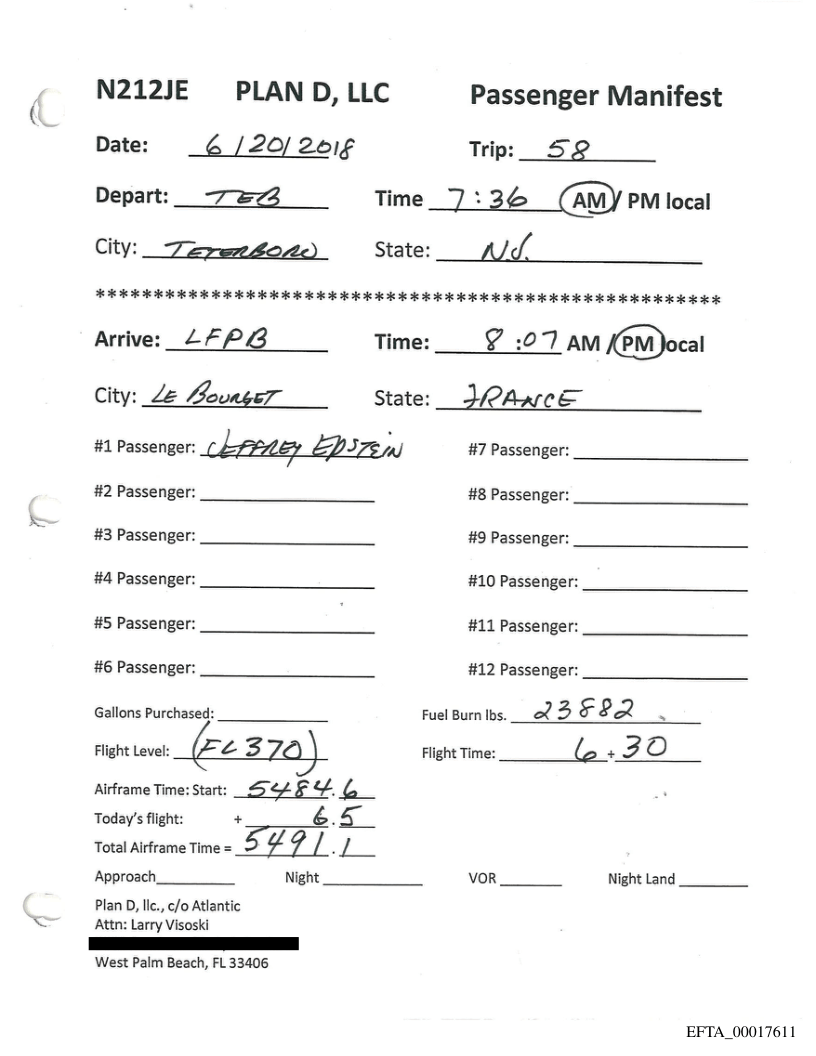 N212JE PLAN D, LLC Passenger Manifest
Date: 6/20/2018 Trip: 58
Depart: TEB Time 7:36 AM/ PM local
City: TETERBORO State: NJ.
******************************************************
Arrive: LFPB Time: 8:07 AM /PM local
City: LE BOURGET State: FRANCE
#1 Passenger: JEFFREY EPSTEIN #7 Passenger:
#2 Passenger: #8 Passenger:
#3 Passenger: #9 Passenger:
#4 Passenger: #10 Passenger:
#5 Passenger: #11 Passenger:
#6 Passenger: #12 Passenger:
Gallons Purchased: Fuel Burn lbs. 23882
Flight Level: (FL370) Flight Time: 6 + 30
Airframe Time: Start: 5484.6
Today's flight: + 6.5
Total Airframe Time = 5491.1
Approach Night VOR Night Land
Plan D, llc., c/o Atlantic
Attn: Larry Visoski
West Palm Beach, FL 33406
EFTA_00017611